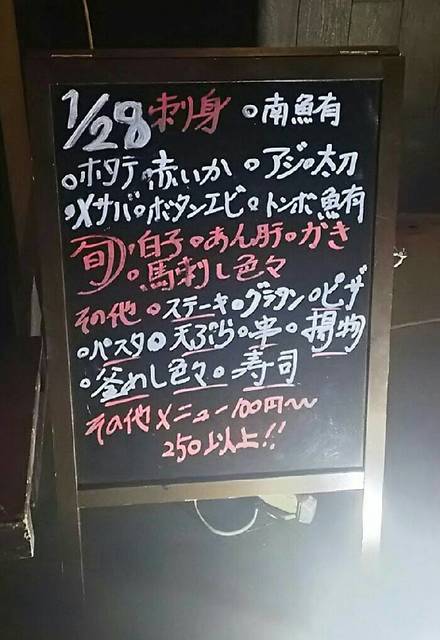 1/28 刺身 ○南鮪
○ホタテ・赤いか ○アジ・太刀
・〆サバ・ボタンエビ・トンボ鮪
旬・白子・あん肝・かき
・馬刺し色々
その他・ステーキ・グラタン・ピザ
・パスタ・天ぷら・串・揚物
・釜めし色々・寿司
その他メニュー100円〜
250以上!!